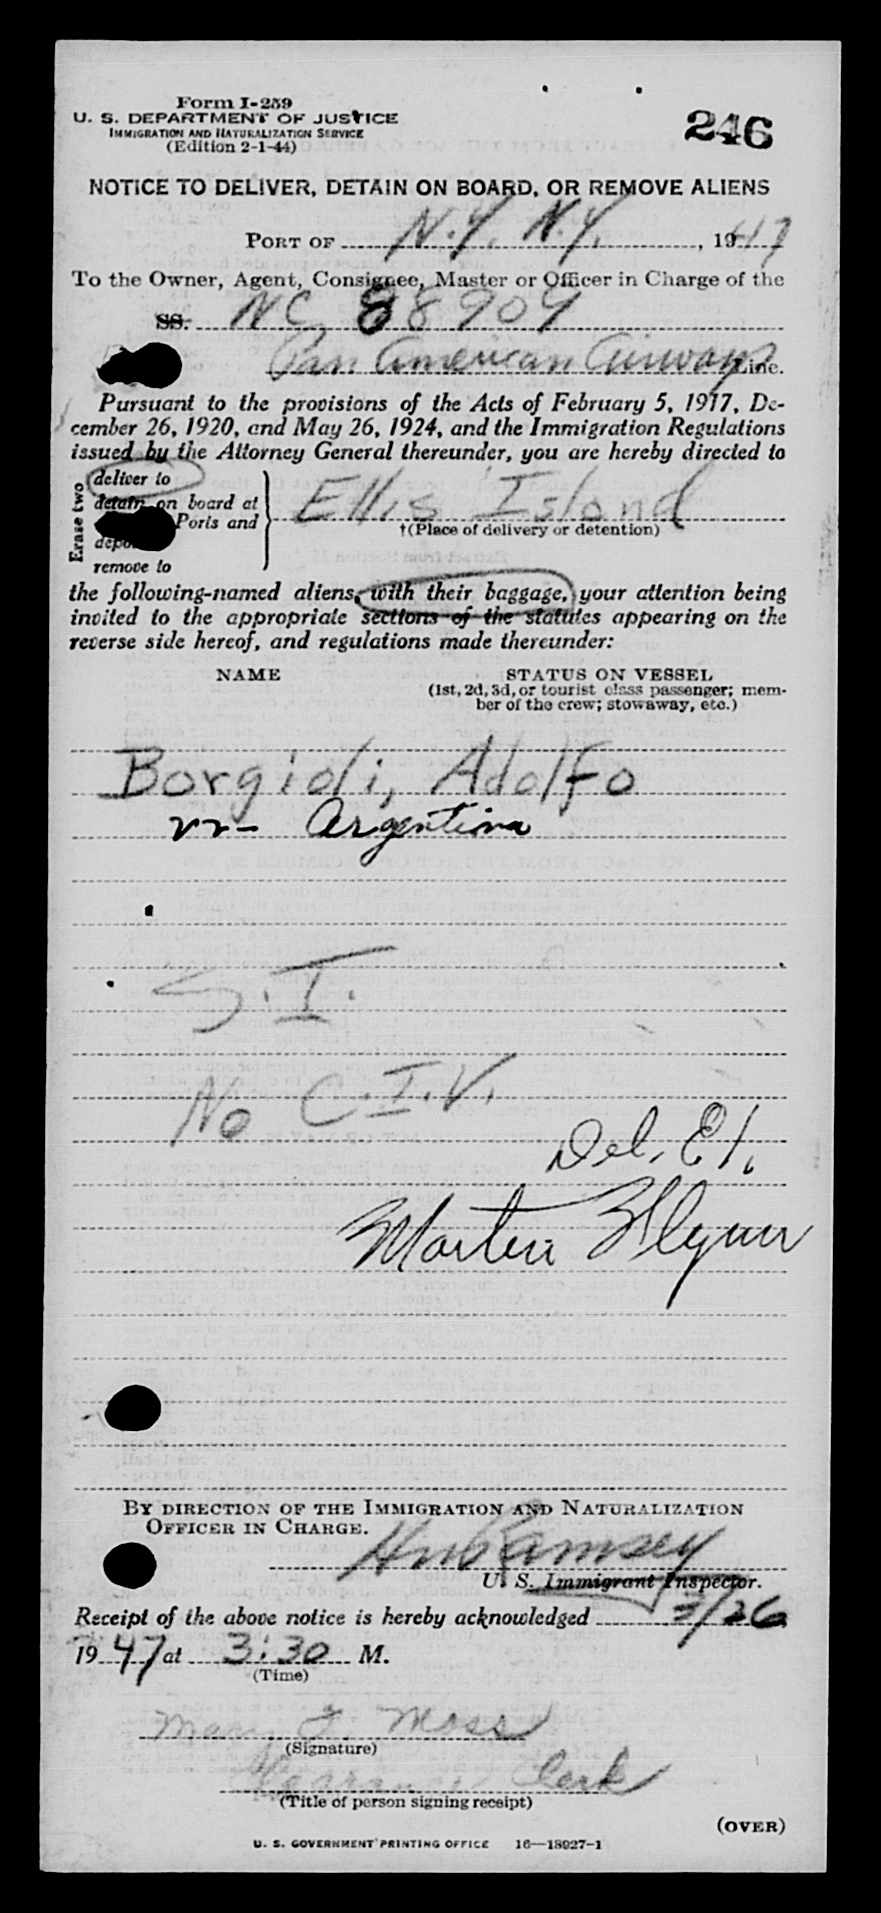 Form I-259
U. S. DEPARTMENT OF JUSTICE
IMMIGRATION AND NATURALIZATION SERVICE
(Edition 2-1-44)
246
NOTICE TO DELIVER, DETAIN ON BOARD, OR REMOVE ALIENS
PORT OF N.Y. N.Y., 1947
To the Owner, Agent, Consignee, Master or Officer in Charge of the
SS. NC 88909
Pan American Airways Line.
Pursuant to the provisions of the Acts of February 5, 1917, De-
cember 26, 1920, and May 26, 1924, and the Immigration Regulations
issued by the Attorney General thereunder, you are hereby directed to
Erase two
deliver to
detain on board at
Ports and
remove to
Ellis Island
†(Place of delivery or detention)
the following-named aliens, with their baggage, your attention being
invited to the appropriate sections of the statutes appearing on the
reverse side hereof, and regulations made thereunder:
NAME STATUS ON VESSEL
(1st, 2d, 3d, or tourist class passenger; mem-
ber of the crew; stowaway, etc.)
Borgioli, Adolfo
Argentina
S.I.
No C.I.V.
Del. EI.
Martin Flynn
BY DIRECTION OF THE IMMIGRATION AND NATURALIZATION
OFFICER IN CHARGE.
Ramsey
U. S. Immigrant Inspector.
Receipt of the above notice is hereby acknowledged 3/26
1947 at 3:30 M.
(Time)
Mary F. Moss
(Signature)
Clerk
(Title of person signing receipt)
(OVER)
U. S. GOVERNMENT PRINTING OFFICE 16—18927-1